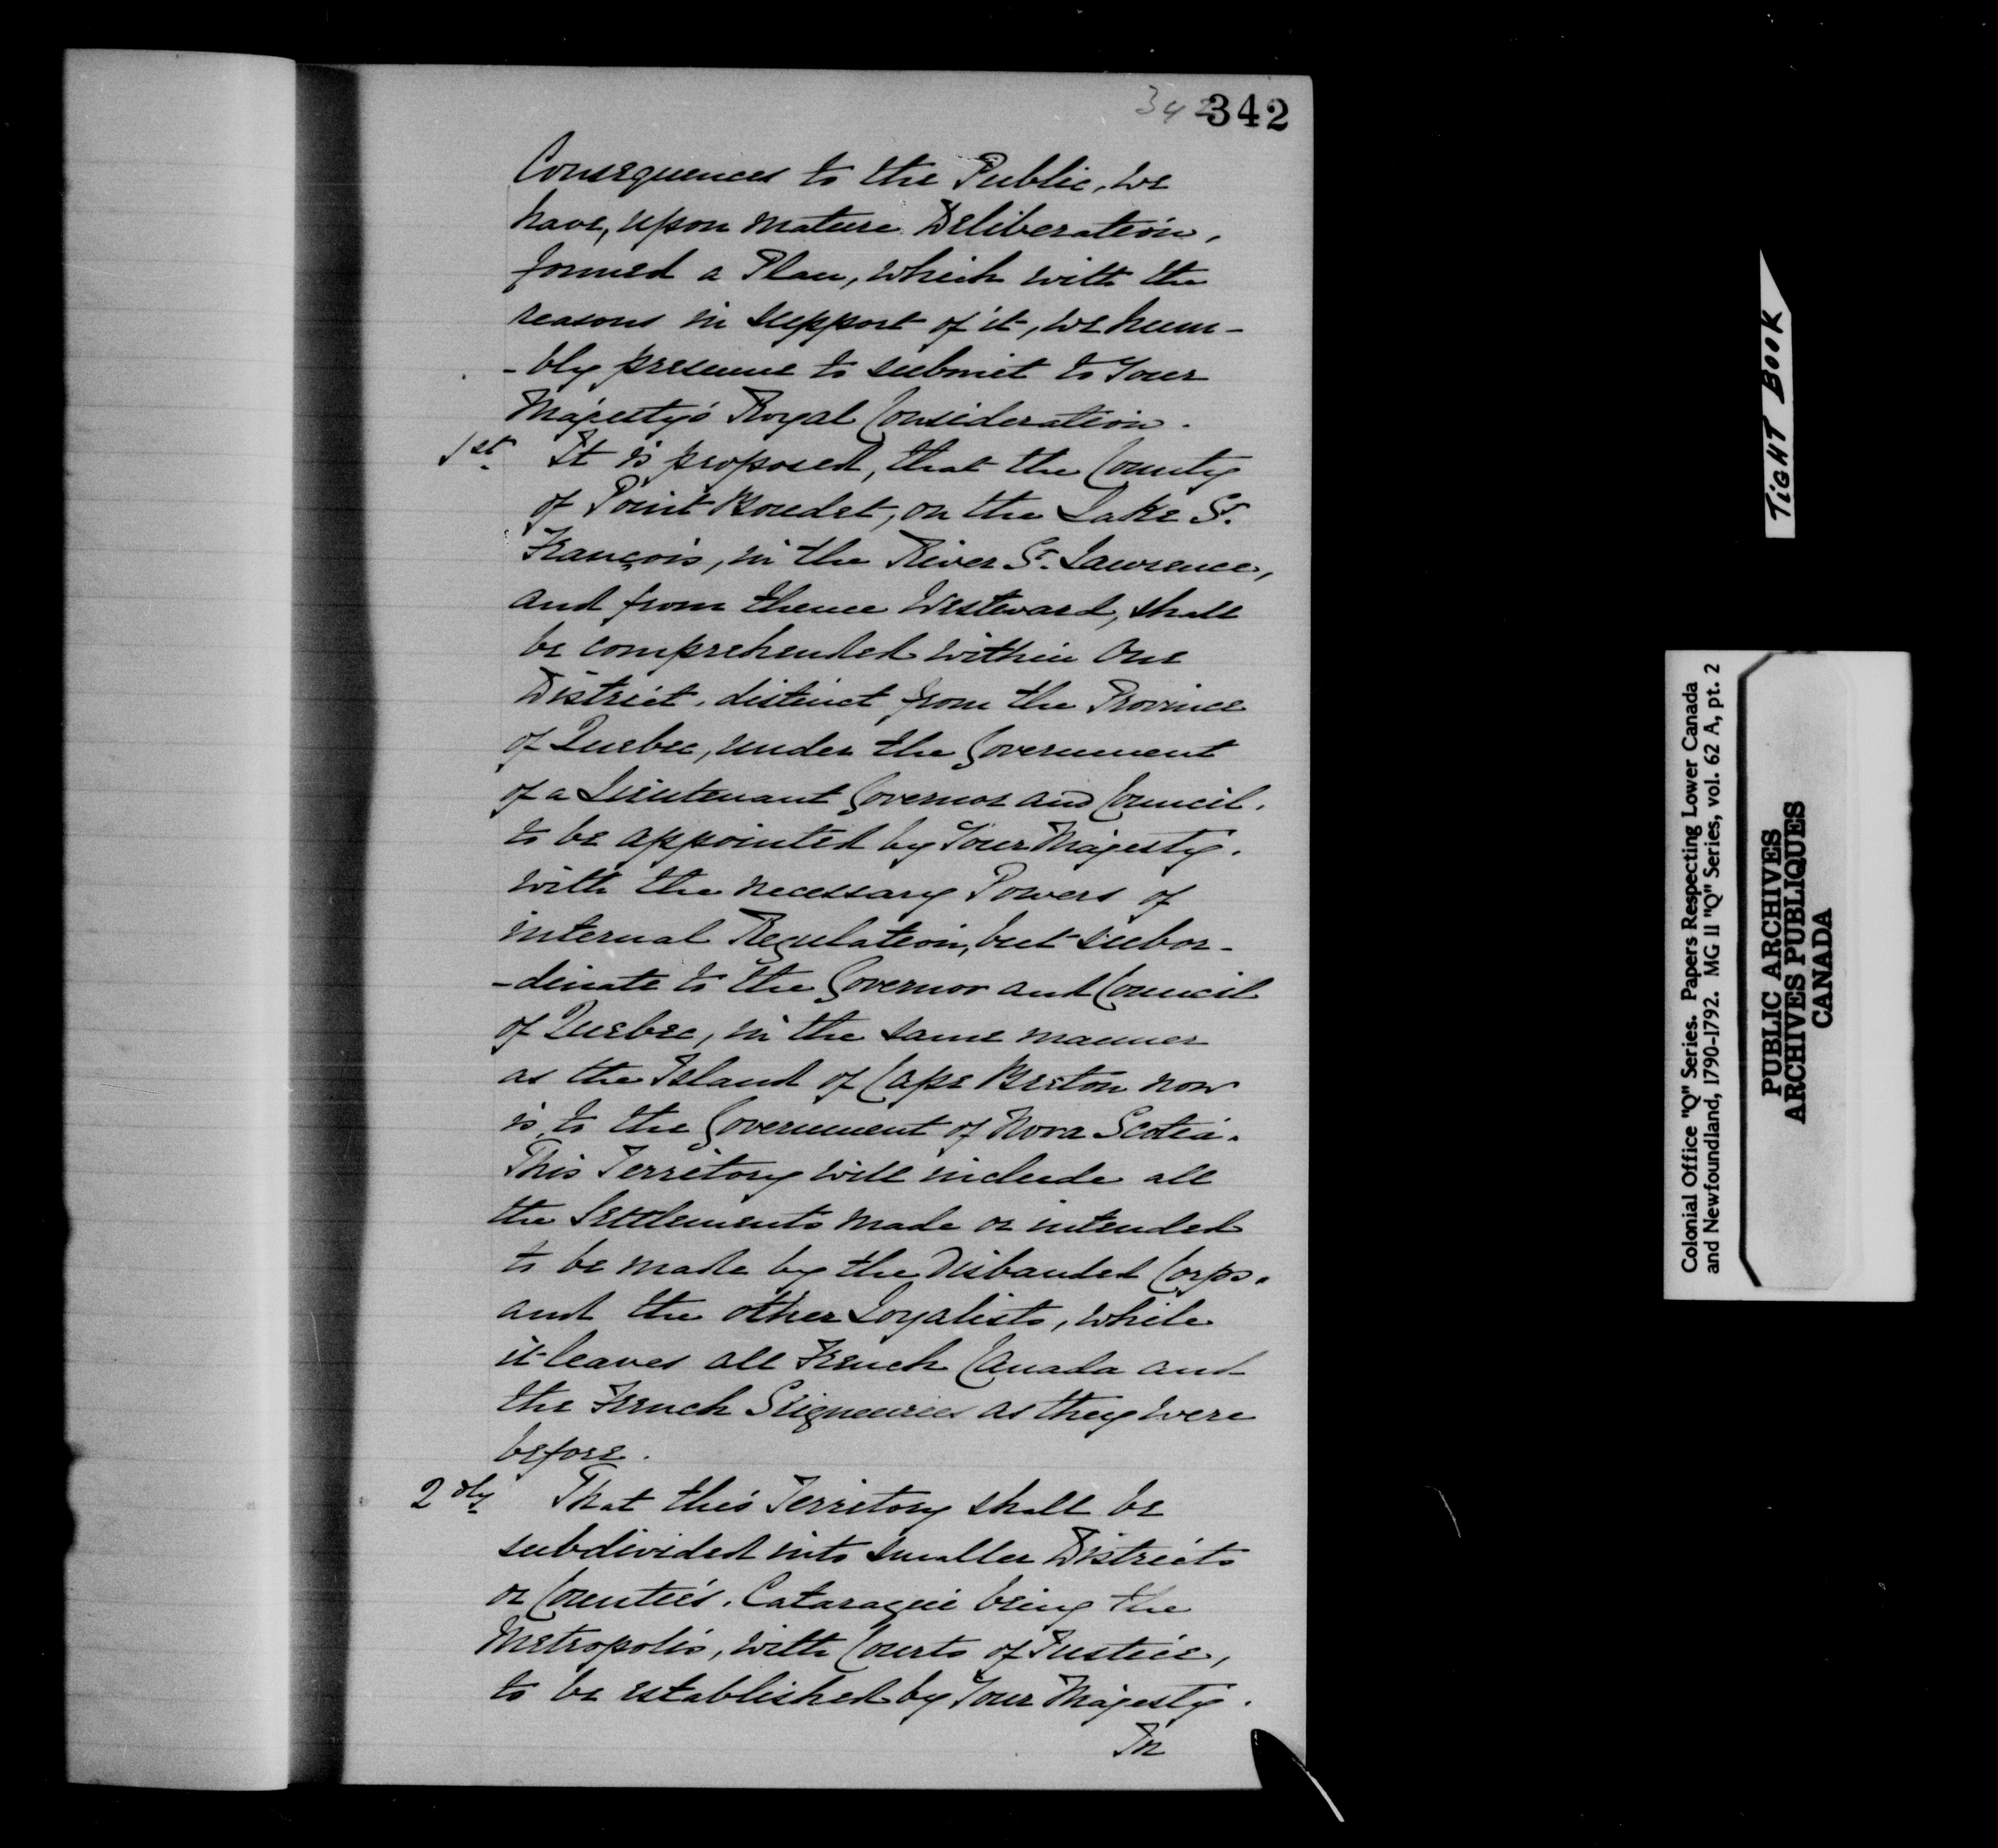 342
342
Consequences to the Public, we
have, upon mature Deliberation,
formed a Plan, which with the
reasons in support of it, we hum-
-bly presume to submit to Your
Majesty's Royal Consideration.
1st. It is proposed, that the County
of Point Boudet, on the Lake St.
François, in the River St. Lawrence,
and from thence Westward, shall
be comprehended within One
District, distinct from the Province
of Quebec, under the Government
of a Lieutenant Governor and Council,
to be appointed by Your Majesty,
with the necessary Powers of
internal Regulation, but subor-
-dinate to the Governor and Council
of Quebec, in the same manner
as the Island of Cape Breton now
is, to the Government of Nova Scotia.
This Territory will include all
the Settlements made or intended
to be made by the Disbanded Corps,
and the other Loyalists, while
it leaves all French Canada and
the French Seigneuries as they were
before.
2dly. That this Territory shall be
subdivided into smaller Districts
or Counties, Cataraqui being the
Metropolis, with Courts of Justice,
to be established by Your Majesty.
In
TIGHT BOOK
Colonial Office "Q" Series. Papers Respecting Lower Canada
and Newfoundland, 1790-1792. MG 11 "Q" Series, vol. 62 A, pt. 2
PUBLIC ARCHIVES
ARCHIVES PUBLIQUES
CANADA